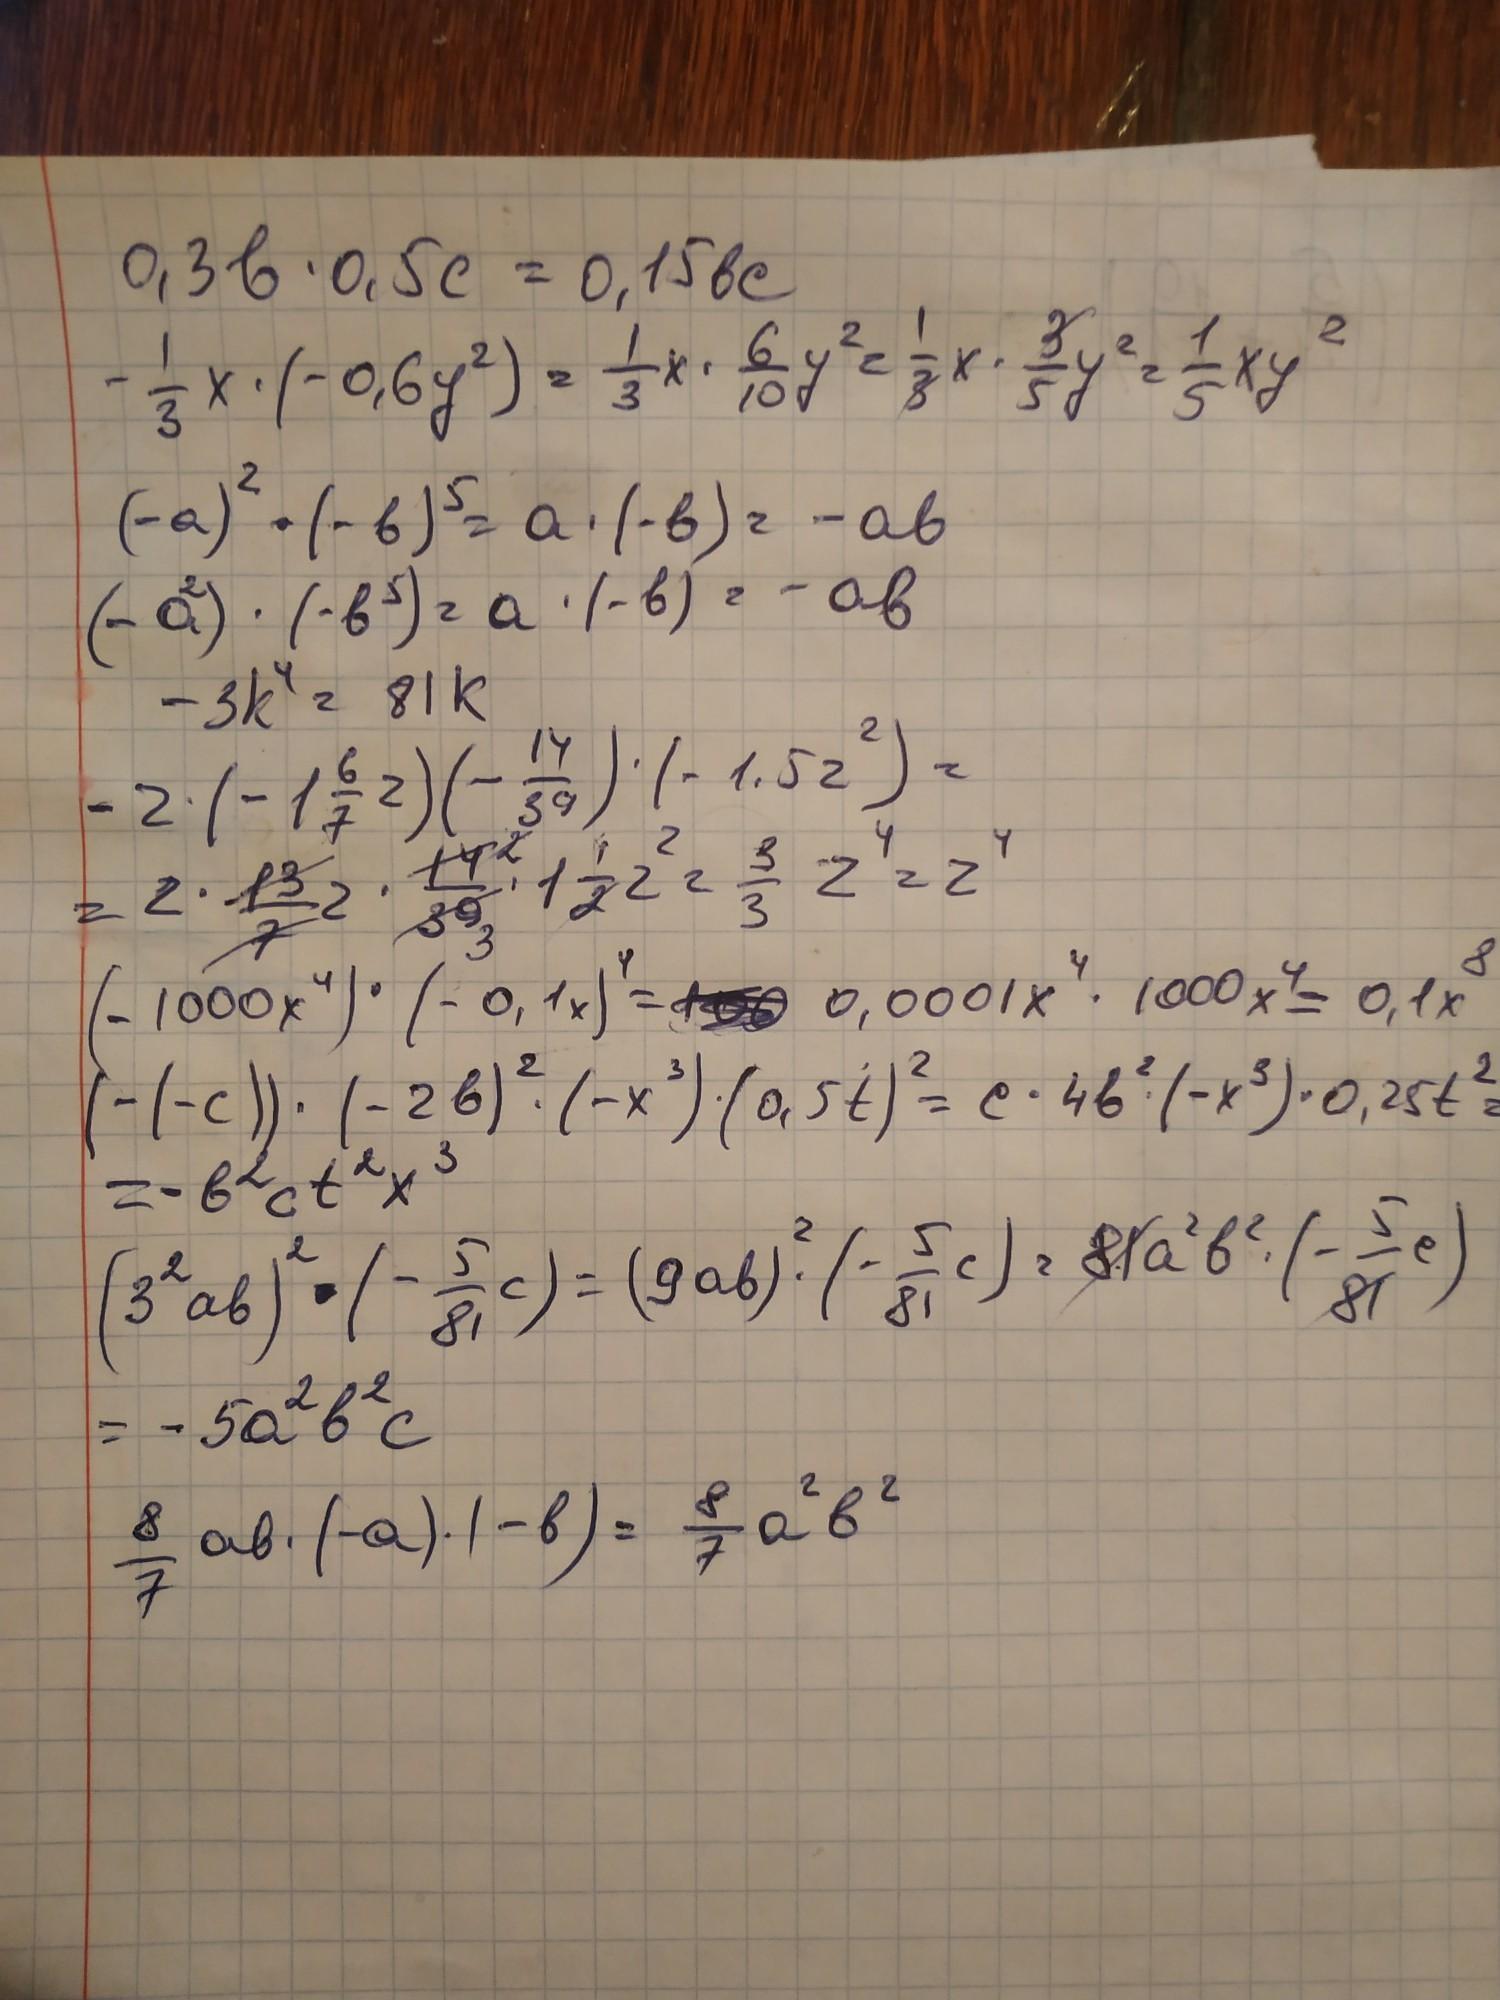 0,3b · 0,5c = 0,15bc
-1/3 x · (-0,6y²) = 1/3 x · 6/10 y² = 1/3 x · 3/5 y² = 1/5 xy²
(-a)² · (-b)⁵ = a · (-b) = -ab
(-a²) · (-b⁵) = a · (-b) = -ab
-3k⁴ = 81k
-z · (-1 6/7 z)(-14/39) · (-1.5z²) =
= z · 13/7 z · 14²/39₃ · 1 1/2 z² = 3/3 z⁴ = z⁴
(-1000x⁴) · (-0,1x)⁴ = 0,0001x⁴ · 1000x⁴ = 0,1x⁸
(-(-c)) · (-2b)² · (-x³) · (0,5t)² = c · 4b² · (-x³) · 0,25t² =
= -b²ct²x³
(3²ab)² · (-5/81 c) = (9ab)² · (-5/81 c) = 81a²b² · (-5/81 c)
= -5a²b²c
8/7 ab · (-a) · (-b) = 8/7 a²b²